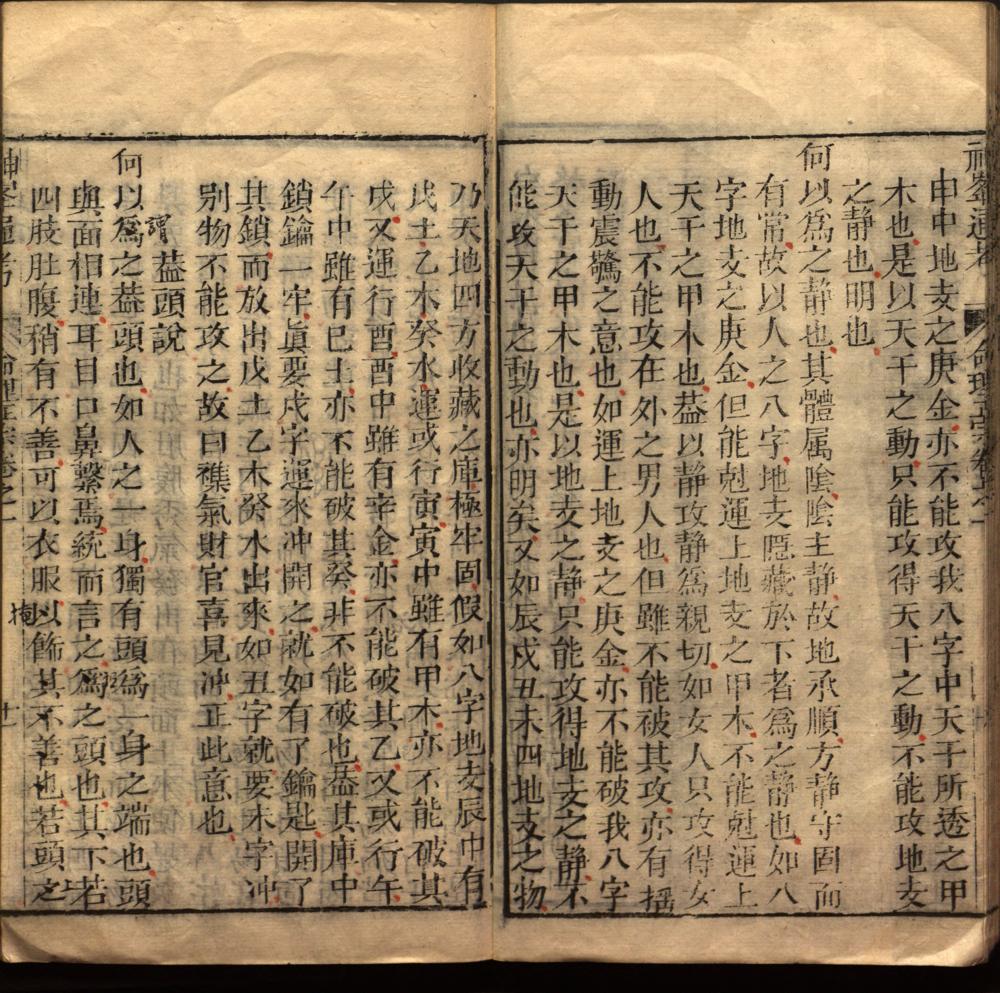 神峯通考　命理正宗卷之一
申中地支之庚金亦不能攻我八字中天干所透之甲
木也是以天干之動只能攻得天干之動不能攻地支
之静也明也
何以爲之静也其體属陰陰主静故地承順方静守固而
有常故以人之八字地支隠藏於下者爲之静也如八
字地支之庚金但能尅運上地支之甲木不能尅運上
天干之甲木也葢以静攻静爲親切如女人只攻得女
人也不能攻在外之男人也但雖不能被其攻亦有揺
動震驚之意也如運上地支之庚金亦不能破我八字
天干之甲木也是以地支之静只能攻得地支之静不
能攻天干之動也亦明矣又如辰戌丑未四地支之物
乃天地四方收藏之庫極牢固假如八字地支辰中有
戊土乙木癸水運或行寅寅中雖有甲木亦不能破其
戊又運行酉酉中雖有辛金亦不能破其乙又或行午
午中雖有巳土亦不能破其癸非不能破也葢其庫中
鎖鑰一牢眞要戌字運來冲開之就如有了鑰匙開了
其鎖而放出戊土乙木癸水出來如丑字就要未字冲
别物不能攻之故曰襍氣財官喜見冲正此意也
葢頭說
何以爲之葢頭也如人之一身獨有頭爲一身之端也頭
謂
與面相連耳目口鼻繫焉統而言之爲之頭也其下若
四肢肚腹稍有不善可以衣服以飾其不善也若頭之
掩
神峯通考　命理正宗卷之一　十一